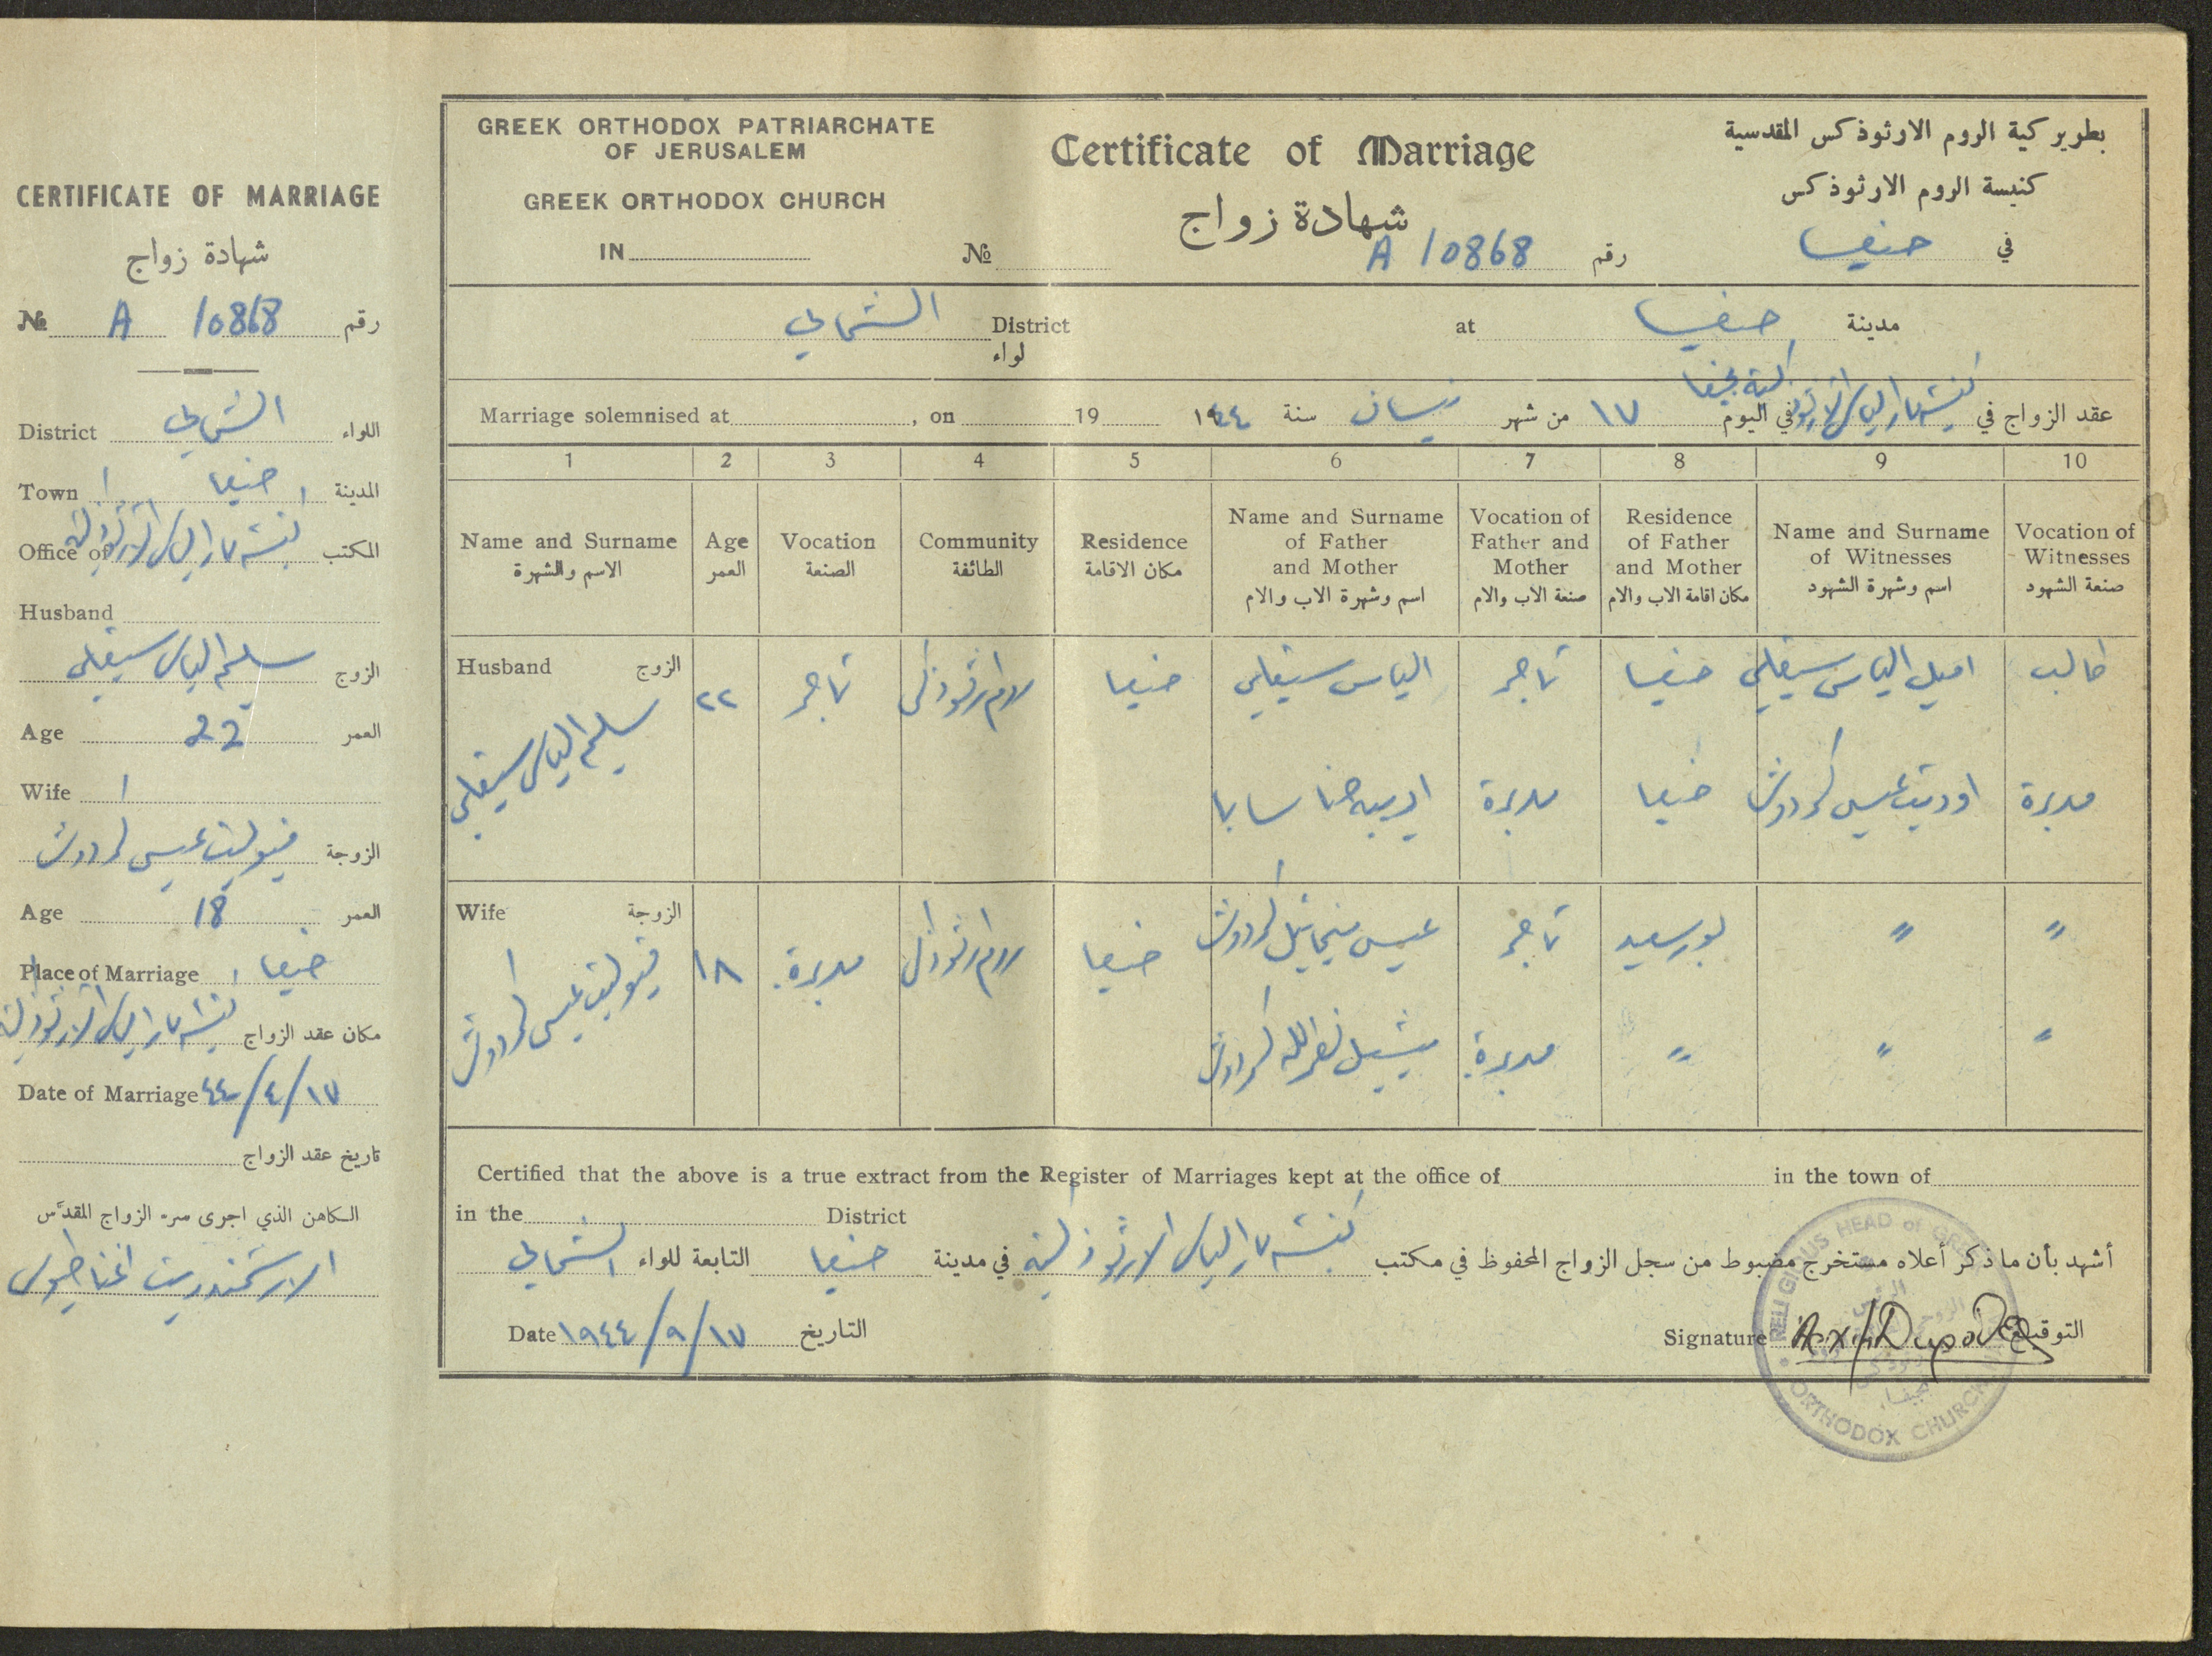 CERTIFICATE OF MARRIAGE
شهادة زواج
№ A 10868 رقم
District الشمالي اللواء
Town حيفا المدينة
Office of كنيسة مار الياس الارثوذكسية المكتب
Husband
سليم الياس سيقلي الزوج
Age 22 العمر
Wife
فيوليت عيسى كردوش الزوجة
Age 18 العمر
Place of Marriage حيفا
كنيسة مار الياس الارثوذكسية مكان عقد الزواج
Date of Marriage ١٧/٤/٤٤
تاريخ عقد الزواج
الكاهن الذي اجرى سر الزواج المقدّس
الارشمندريت اغناطيوس
GREEK ORTHODOX PATRIARCHATE
OF JERUSALEM
GREEK ORTHODOX CHURCH
IN
Certificate of Marriage
شهادة زواج
№ A 10868 رقم
بطريركية الروم الارثوذكس المقدسية
كنيسة الروم الارثوذكس
في حيفا
الشمالي District
لواء
at حيفا مدينة
Marriage solemnised at , on 19
عقد الزواج في كنيسة مار الياس الارثوذكسية بحيفا في اليوم ١٧ من شهر نيسان سنة ١٩٤٤
1 2 3 4 5 6 7 8 9 10
Name and Surname
الاسم والشهرة
Age
العمر
Vocation
الصنعة
Community
الطائفة
Residence
مكان الاقامة
Name and Surname
of Father
and Mother
اسم وشهرة الاب والام
Vocation of
Father and
Mother
صنعة الاب والام
Residence
of Father
and Mother
مكان اقامة الاب والام
Name and Surname
of Witnesses
اسم وشهرة الشهود
Vocation of
Witnesses
صنعة الشهود
Husband الزوج
سليم الياس سيقلي
٢٢
تاجر
روم ارثوذكس
حيفا
الياس سيقلي
تاجر
حيفا
اميل الياس سيقلي
طالب
اديبه حنا سابا
مدبرة
حيفا
اوديت عيسى كردوش
مدبرة
Wife الزوجة
فيوليت عيسى كردوش
١٨
مدبرة
روم ارثوذكس
حيفا
عيسى ميخائيل كردوش
تاجر
بور سعيد
〃
〃
ميشيل نصرالله كردوش
مدبرة
〃
〃
〃
Certified that the above is a true extract from the Register of Marriages kept at the office of in the town of
in the District
أشهد بأن ما ذكر أعلاه مستخرج مضبوط من سجل الزواج المحفوظ في مكتب كنيسة مار الياس الارثوذكسية في مدينة حيفا التابعة للواء الشمالي
Date ١٧/٩/١٩٤٤ التاريخ
Signature التوقيع
RELIGIOUS HEAD of GREEK
ORTHODOX CHURCH